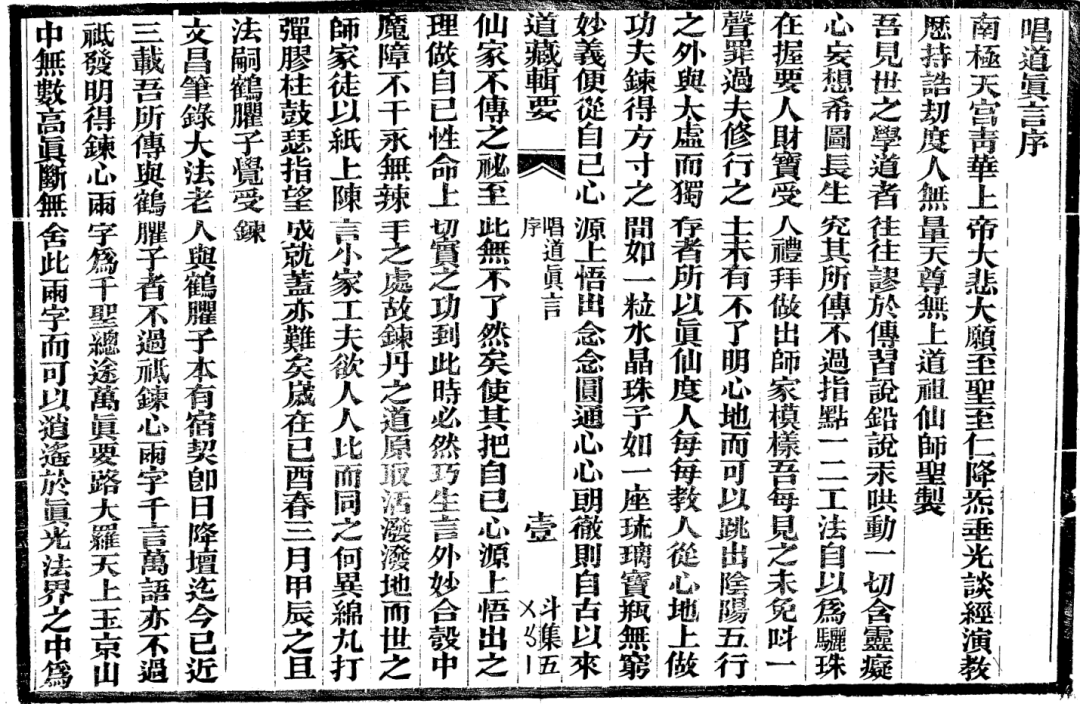 唱道眞言序
南極天宮靑華上帝大悲大願至聖至仁降炁垂光談經演教
歷持誥劫度人無量天尊無上道祖仙師聖製
吾見世之學道者往往謬於傳習說鉛說汞哄動一切含靈癡
心妄想希圖長生究其所傳不過指點一二工法自以爲驪珠
在握要人財寶受人禮拜做出師家模樣吾每見之未免呌一
聲罪過夫修行之士未有不了明心地而可以跳出陰陽五行
之外與太虛而獨存者所以眞仙度人每每教人從心地上做
功夫鍊得方寸之間如一粒水晶珠子如一座琉璃寶瓶無窮
妙義便從自己心源上悟出念念圓通心心朗徹則自古以來
道藏輯要
唱道眞言
序
壹
斗集五
仙家不傳之祕至此無不了然矣使其把自己心源上悟出之
理做自己性命上切實之功到此時必然巧生言外妙合彀中
魔障不干永無辣手之處故鍊丹之道原取活潑潑地而世之
師家徒以紙上陳言小家工夫欲人人比而同之何異綿丸打
彈膠柱鼓瑟指望成就蓋亦難矣歲在己酉春三月甲辰之旦
法嗣鶴臞子覺受鍊
文昌筆錄大法老人與鶴臞子本有宿契卽日降壇迄今已近
三載吾所傳與鶴臞子者不過祗鍊心兩字千言萬語亦不過
祗發明得鍊心兩字爲千聖總途萬眞要路大羅天上玉京山
中無數高眞斷無舍此兩字而可以逍遙於眞光法界之中爲